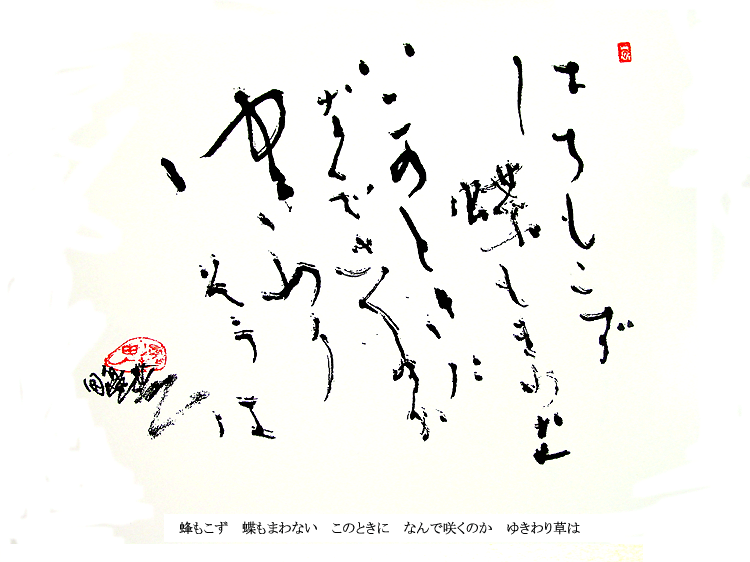 はちもこず
蝶もまわな
い
このときに
なんでさくのか
ゆきわり
そうは
蜂もこず　蝶もまわない　このときに　なんで咲くのか　ゆきわり草は